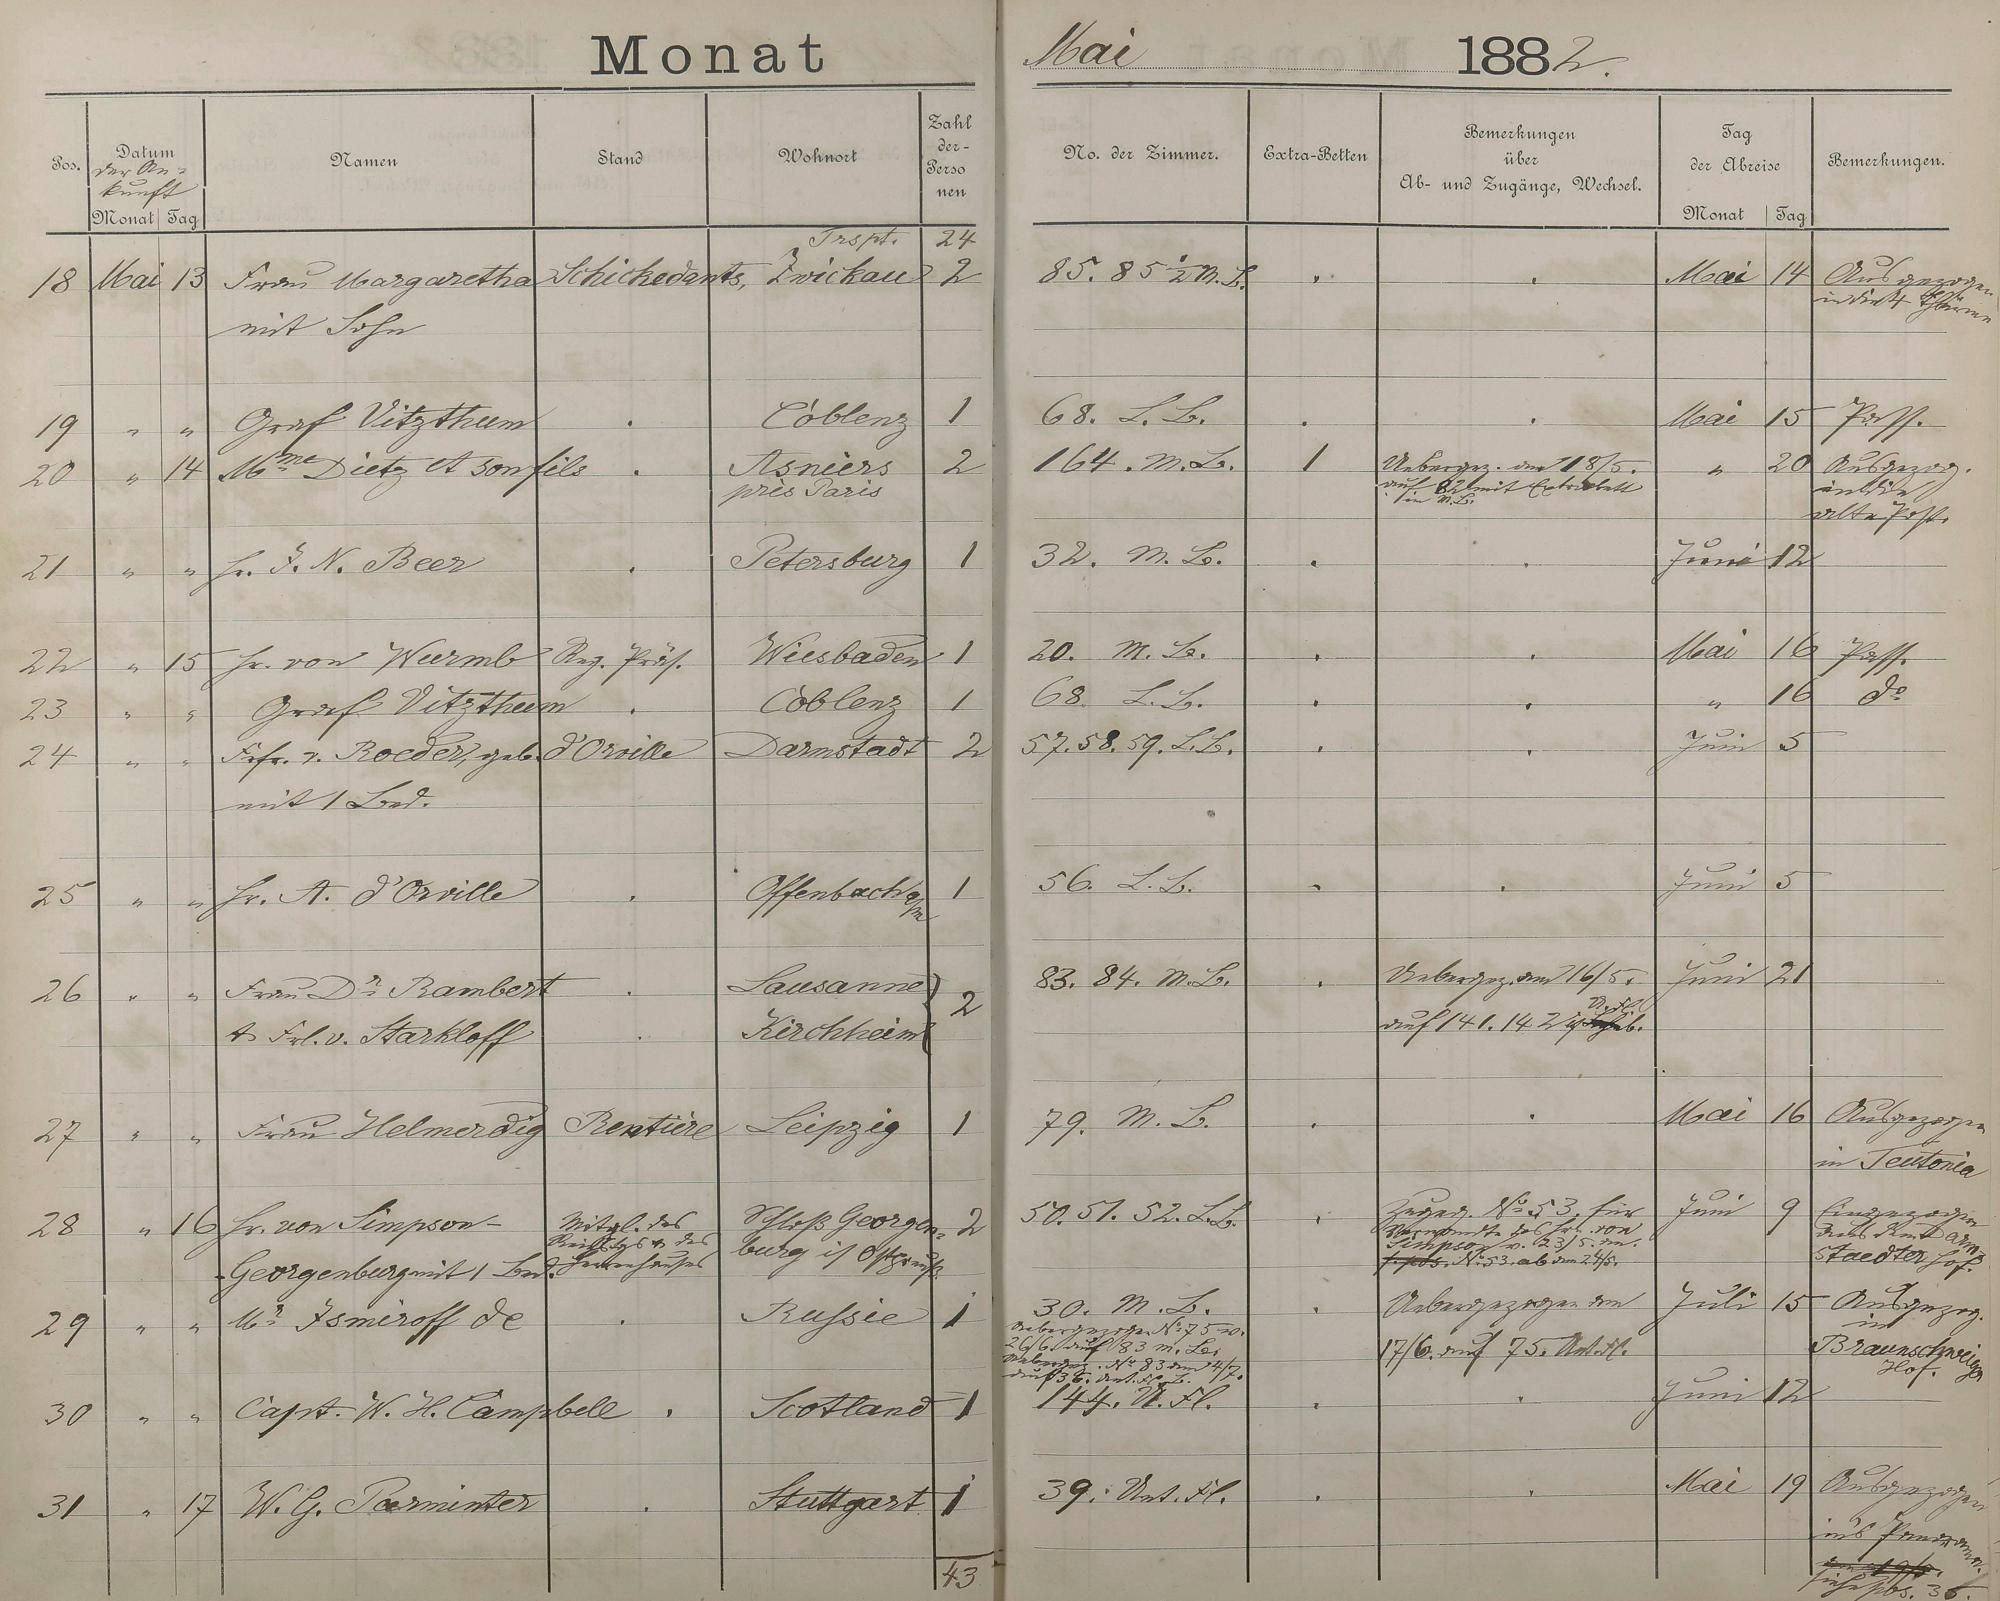 Monat
Mai 1882.
Pos. Datum der Ankunft Monat Tag Namen Stand Wohnort Zahl der Perso nen
No. der Zimmer. Extra-Betten Bemerkungen über Ab- und Zugänge, Wechsel. Tag der Abreise Monat Tag Bemerkungen.
Trspt. 24
18 Mai 13 Frau Margaretha Schickedants, Zwickau 2 85. 85 1/2 M. B. Mai 14 Ausgezogen
mit Sohn
19 " " Graf Vitzthum . Coblenz 1 68. L. B. . . Mai 15 Pass.
20 " 14 Mme Dietz et son fils . Asniers 2 164. M. B. 1 Uebergez. am 18/5. " 20 Ausgezog.
près Paris auf 82 mit Extrabett in die
in M.B. alte Post.
21 " " Hr. J. N. Beer . Petersburg 1 32. M. B. . . Juni 12
22 " 15 Hr. von Wurmb Reg. Präs. Wiesbaden 1 20. M. B. . . Mai 16 Pass.
23 " " Graf Vitzthum . Coblenz 1 68. L. B. . . " 16 do
24 " " Frfr. v. Roeder, geb. d'Orville Darmstadt 2 57. 58. 59. L. B. . . Juni 5
mit 1 Bed.
25 " " Hr. A. d'Orville . Offenbach a/m 1 56. L. B. . . Juni 5
26 " " Frau Dr Rambert . Lausanne } 2 83. 84. M. B. . Uebergez. am 16/5. Juni 21
& Frl. v. Starkloff . Kirchheim auf 141. 142 U. Fl.
27 " " Frau Helmerdig Rentière Leipzig 1 79. M. B. . . Mai 16 Ausgezogen
in Teutonia
28 " 16 Hr. von Simpson- Mitgl. des Schloß Georgen- 2 50. 51. 52. L. B. . Zugeg. No 53. für Juni 9 Eingezogen
Reichstgs & des burg i/ Ostpreuß. Verwandte des Hrn. von
Georgenburg mit 1 Bed. Herrenhauses Simpson v. 23/5. an. Staedter Hof.
No 53. ab am 24/5.
29 " " Mr Ismiroff de . Russie 1 30. M. B. . Uebergezogen am Juli 15 Ausgezog.
Uebergezogen No 75 v. in
26/6. auf 83 M. B. 17/6. auf 75. Unt. Fl. Braunschweiger
Uebergez. No 83 am 4/7. Hof.
auf 36. Unt. Fl. B.
30 " " Capt. W. H. Campbell . Scotland 1 144. U. Fl. . . Juni 12
31 " 17 W. G. Parminter . Stuttgart 1 39. Unt. Fl. . . Mai 19 Ausgezogen
ins Panorama.
siehe pos. 36.
43